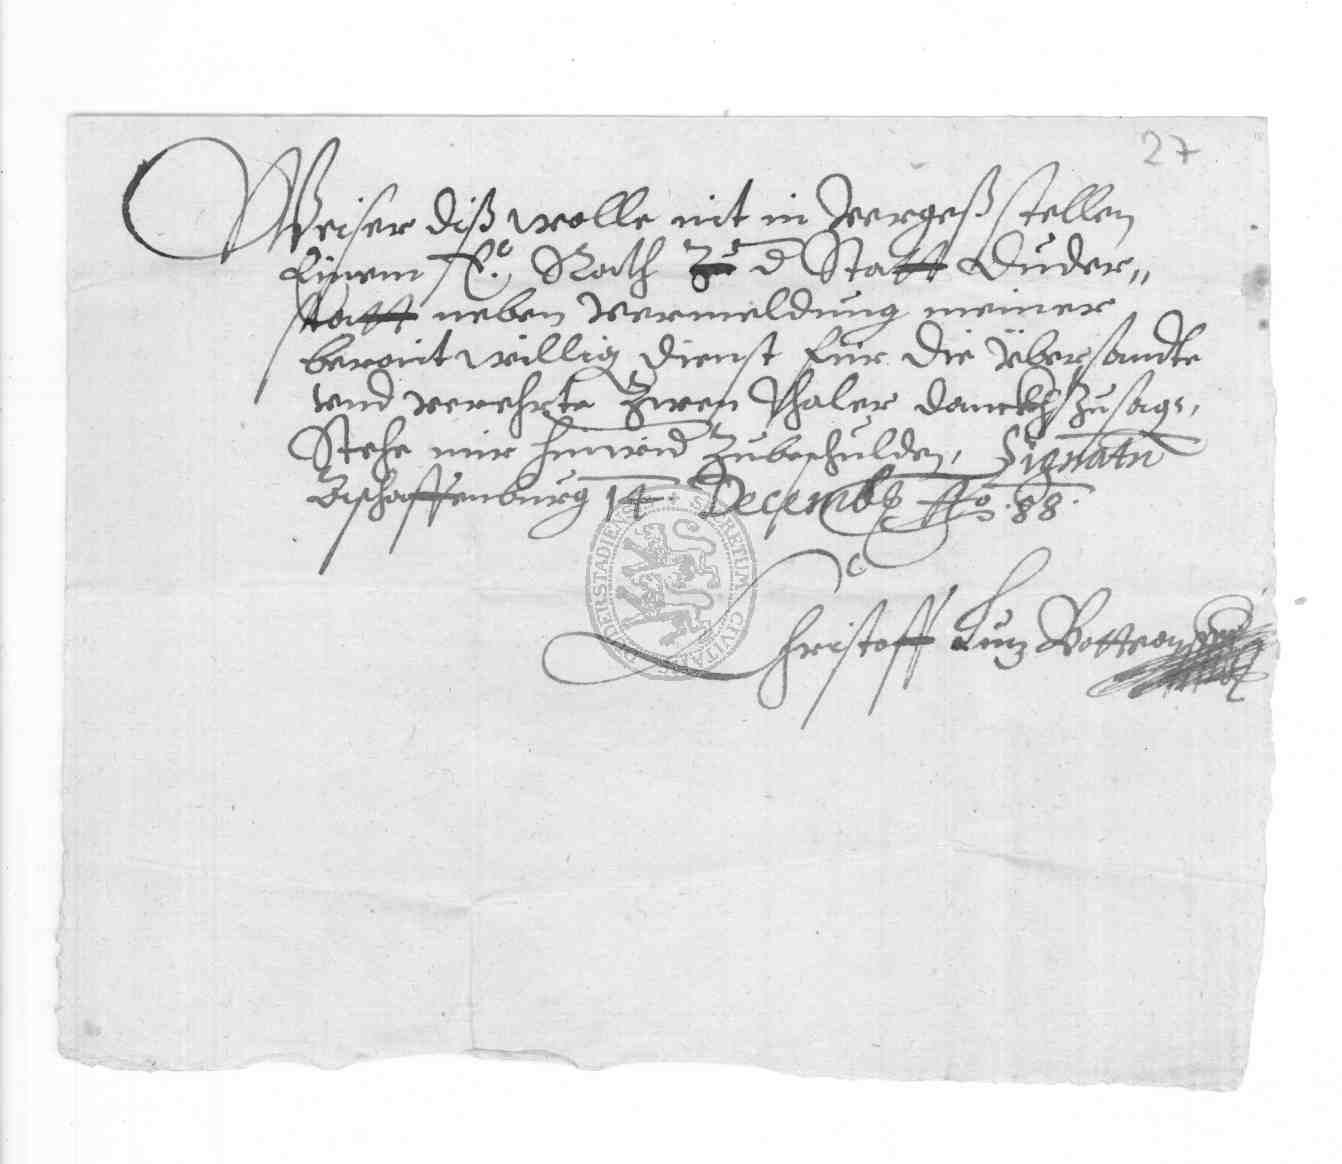 27
Weiser diß wolle nit in vergeß stellen
Einem E. Rath Zu d Statt Duder„
statt neben vermeldung meiner
beraitwillig dienst für die Übersandte
vnd verehrte Zwen thaler danckh Zusag,
Stehe mir hinwid Zubeschulden, Signatu
Aschaffenburg 14. Decemb Ao. 88.
Christoff Lutz
SECRETUM CIVITATIS DUDERSTADIENSIS